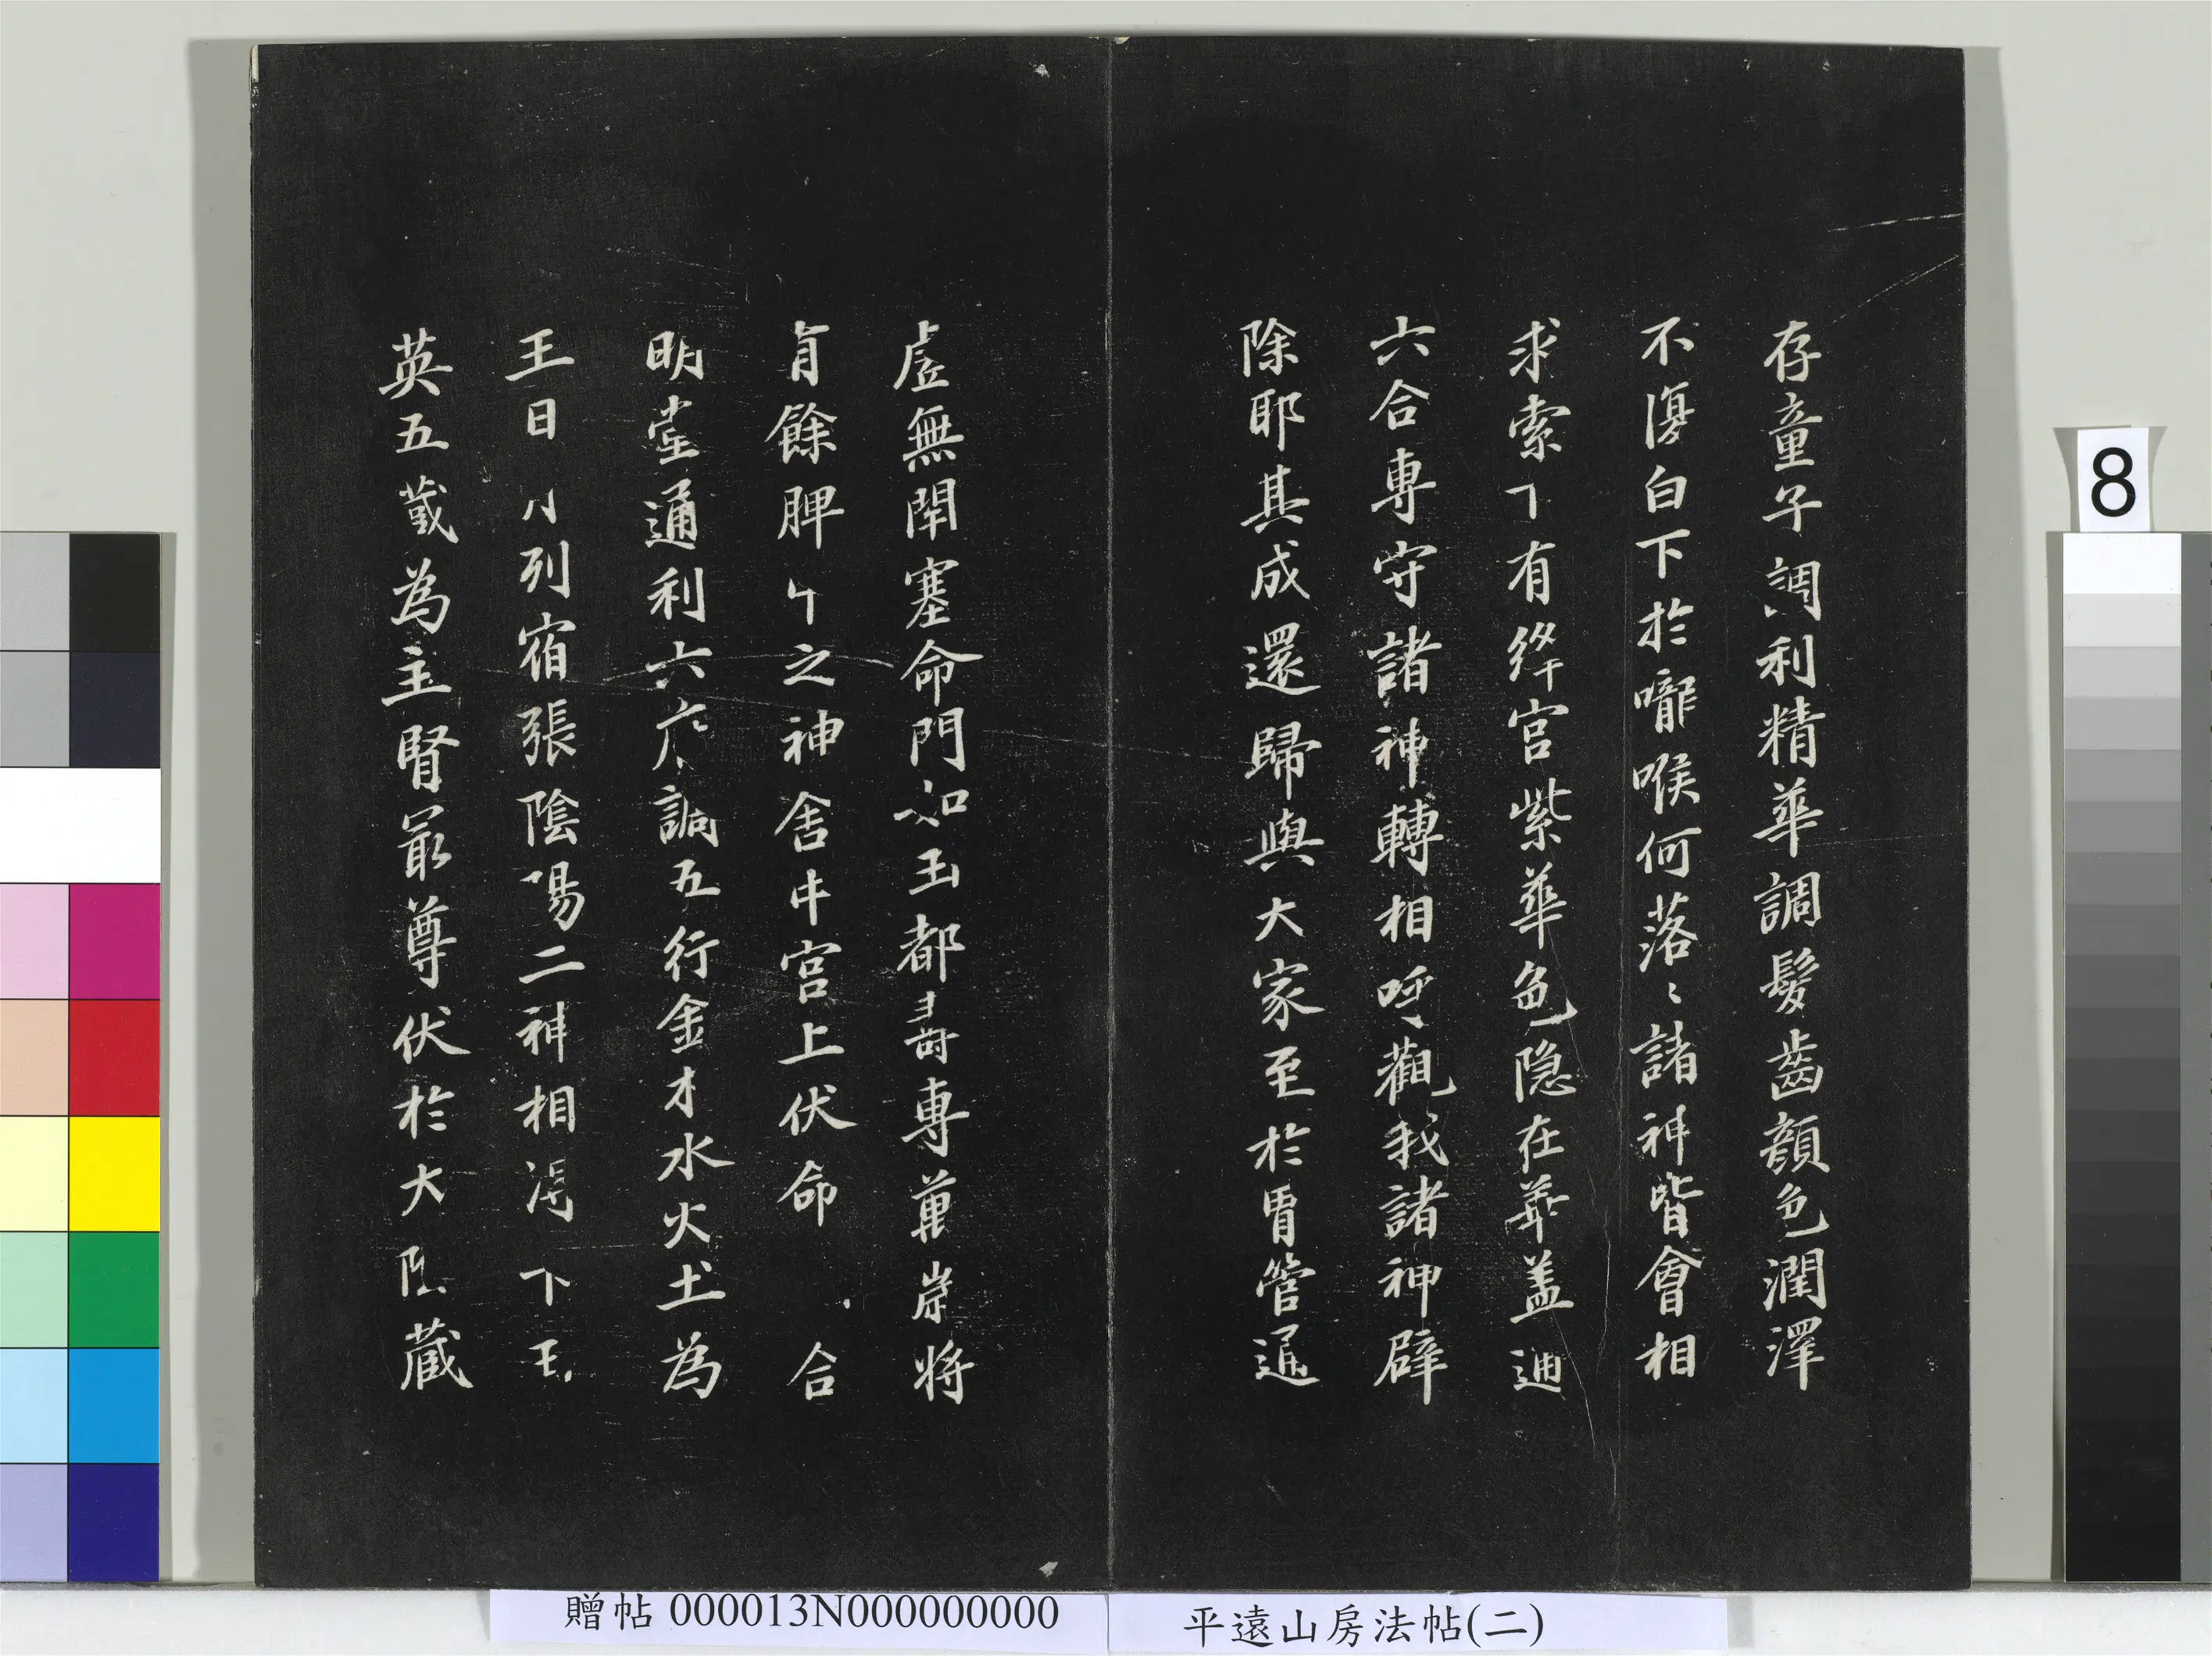 存童子調利精華調髮齒顏色潤澤
不復白下於嚨喉何落〻諸神皆會相
求索下有絳宮紫華色隱在華蓋通
六合專守諸神轉相呼觀我諸神辟
除耶其成還歸與大家至於胃管通
虛無閉塞命門如玉都壽專萬歲將
有餘脾中之神舍中宮上伏命 合
明堂通利六府調五行金木水火土為
王日月列宿張陰陽二神相得下玉
英五藏為主腎最尊伏於大陰藏
8
贈帖 000013N000000000
平遠山房法帖(二)